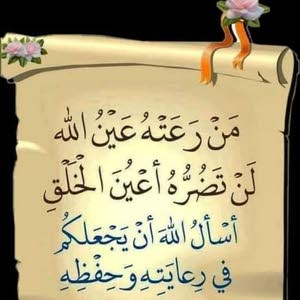 مَنْ رَعَتْهُ عَيْنُ الله
لَنْ تَضُرُّهُ أعْيُنَ الْخَلْقِ
أسْألُ اللهَ أنْ يَجْعَلكُم
في رِعايَتِهِ وَحِفْظِهِ